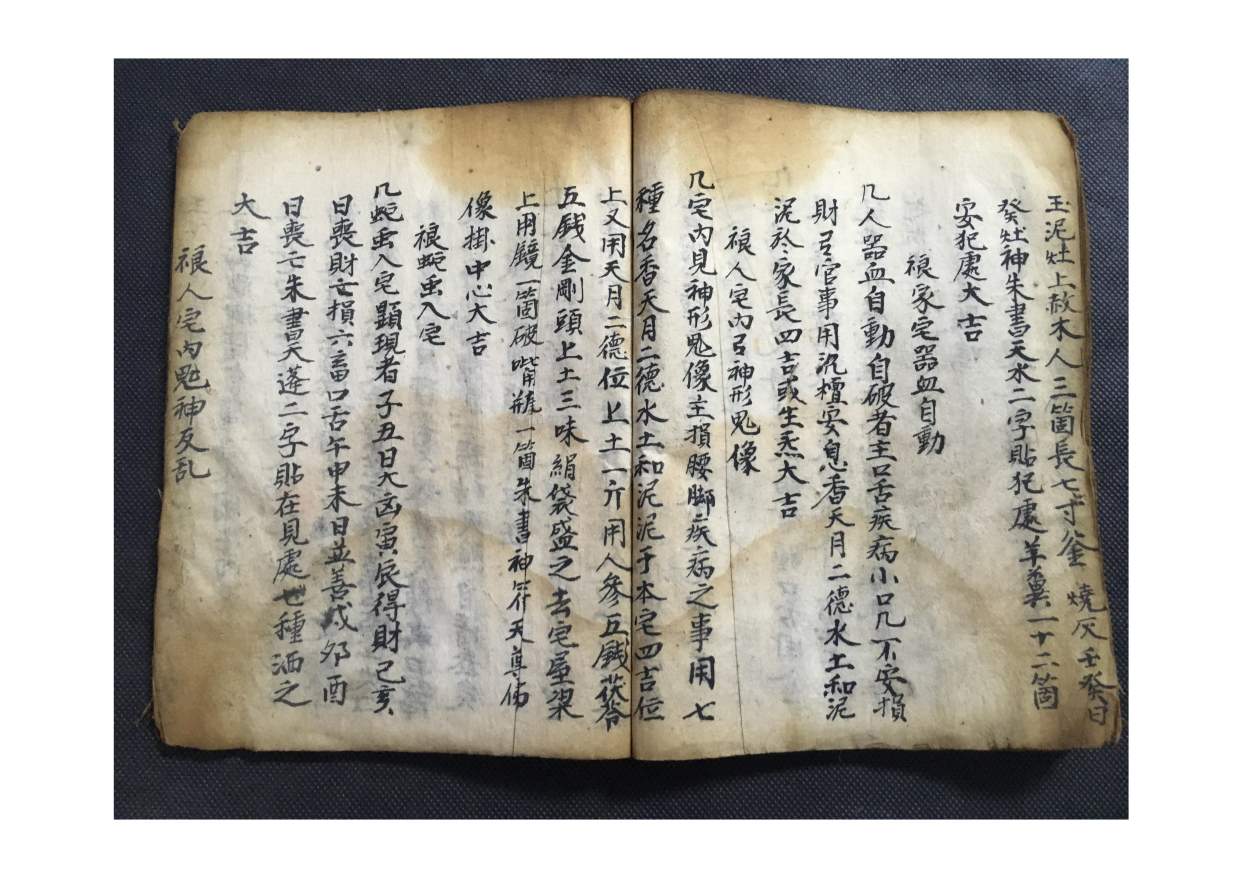 玉泥灶上赦木人三箇長七寸釜燒灰壬癸日
癸灶神朱書天水二字貼犯處羊糞一十二箇
安犯處大吉
禳家宅器血自動
凡人器血自動自破者主口舌疾病小口几不安損
財弓官事用汎檀安息香天月二德水土和泥
泥於家長四吉或生炁大吉
禳人宅內弓神形鬼像
凡宅內見神形鬼像主損腰脚疾病之事用七
種名香天月二德水土和泥泥于本宅四吉位
上又用天月二德位上土一斤用人參五錢茯苓
五錢金剛頭上土三味絹袋盛之去宅屋梁
上用鏡一箇破甁一箇朱書神符天尊佛
像掛中心大吉
禳蛇虫入宅
凡蛇虫入宅顯現者子丑日大凶寅辰得財己亥
日喪財亡損六畜口舌午申未日並善戌夘酉
日喪亡朱書天蓬二字貼在見處七種洒之
大吉
禳人宅內鬼神反乱